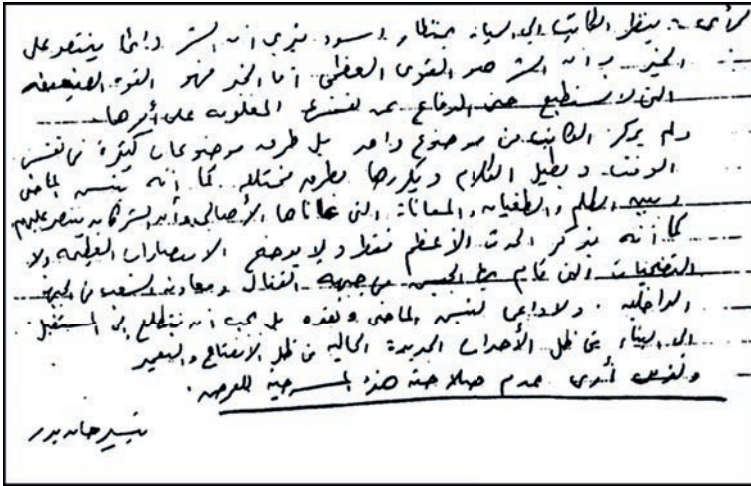 الرأى :- ينظر الكاتب إلى الحياة بمنظار أسود فيرى أن الشر دائما ينتصر على
الخير وأن الشر هو القوى العظمى أما الخير فهو القوة الضعيفة
التى لا تستطيع حتى الدفاع عن نفسها المغلوبة على أمرها
ولم يركز الكاتب من موضوع واحد بل طرق موضوعات كثيرة فى نفس
الوقت ويطيل الكلام ويكررها بطرق مختلفة كما أنه ينبش الماضى
الظلم والطغيان والمعاناة التى عاناها الأهالى وأن الشر كان ينتصر عليهم
كما أنه يذكر الحدث الأعظم فقط ولا يوضح الانتصارات العظيمة ولا
التضحيات التى قام بها الجيش من جبهة القتال ومعاونة الشعب فى الجبهة
الداخلية . ولا داعى لنبش الماضى ونقده بل يجب أن نتطلع إلى المستقبل
إلى البناء فى ظل الأحداث الجديدة الحالية من ظل الانفتاح والتعمير
ولذلك أرى عدم صلاحية هذه المسرحية للعرض .
تيسير حامد بدر